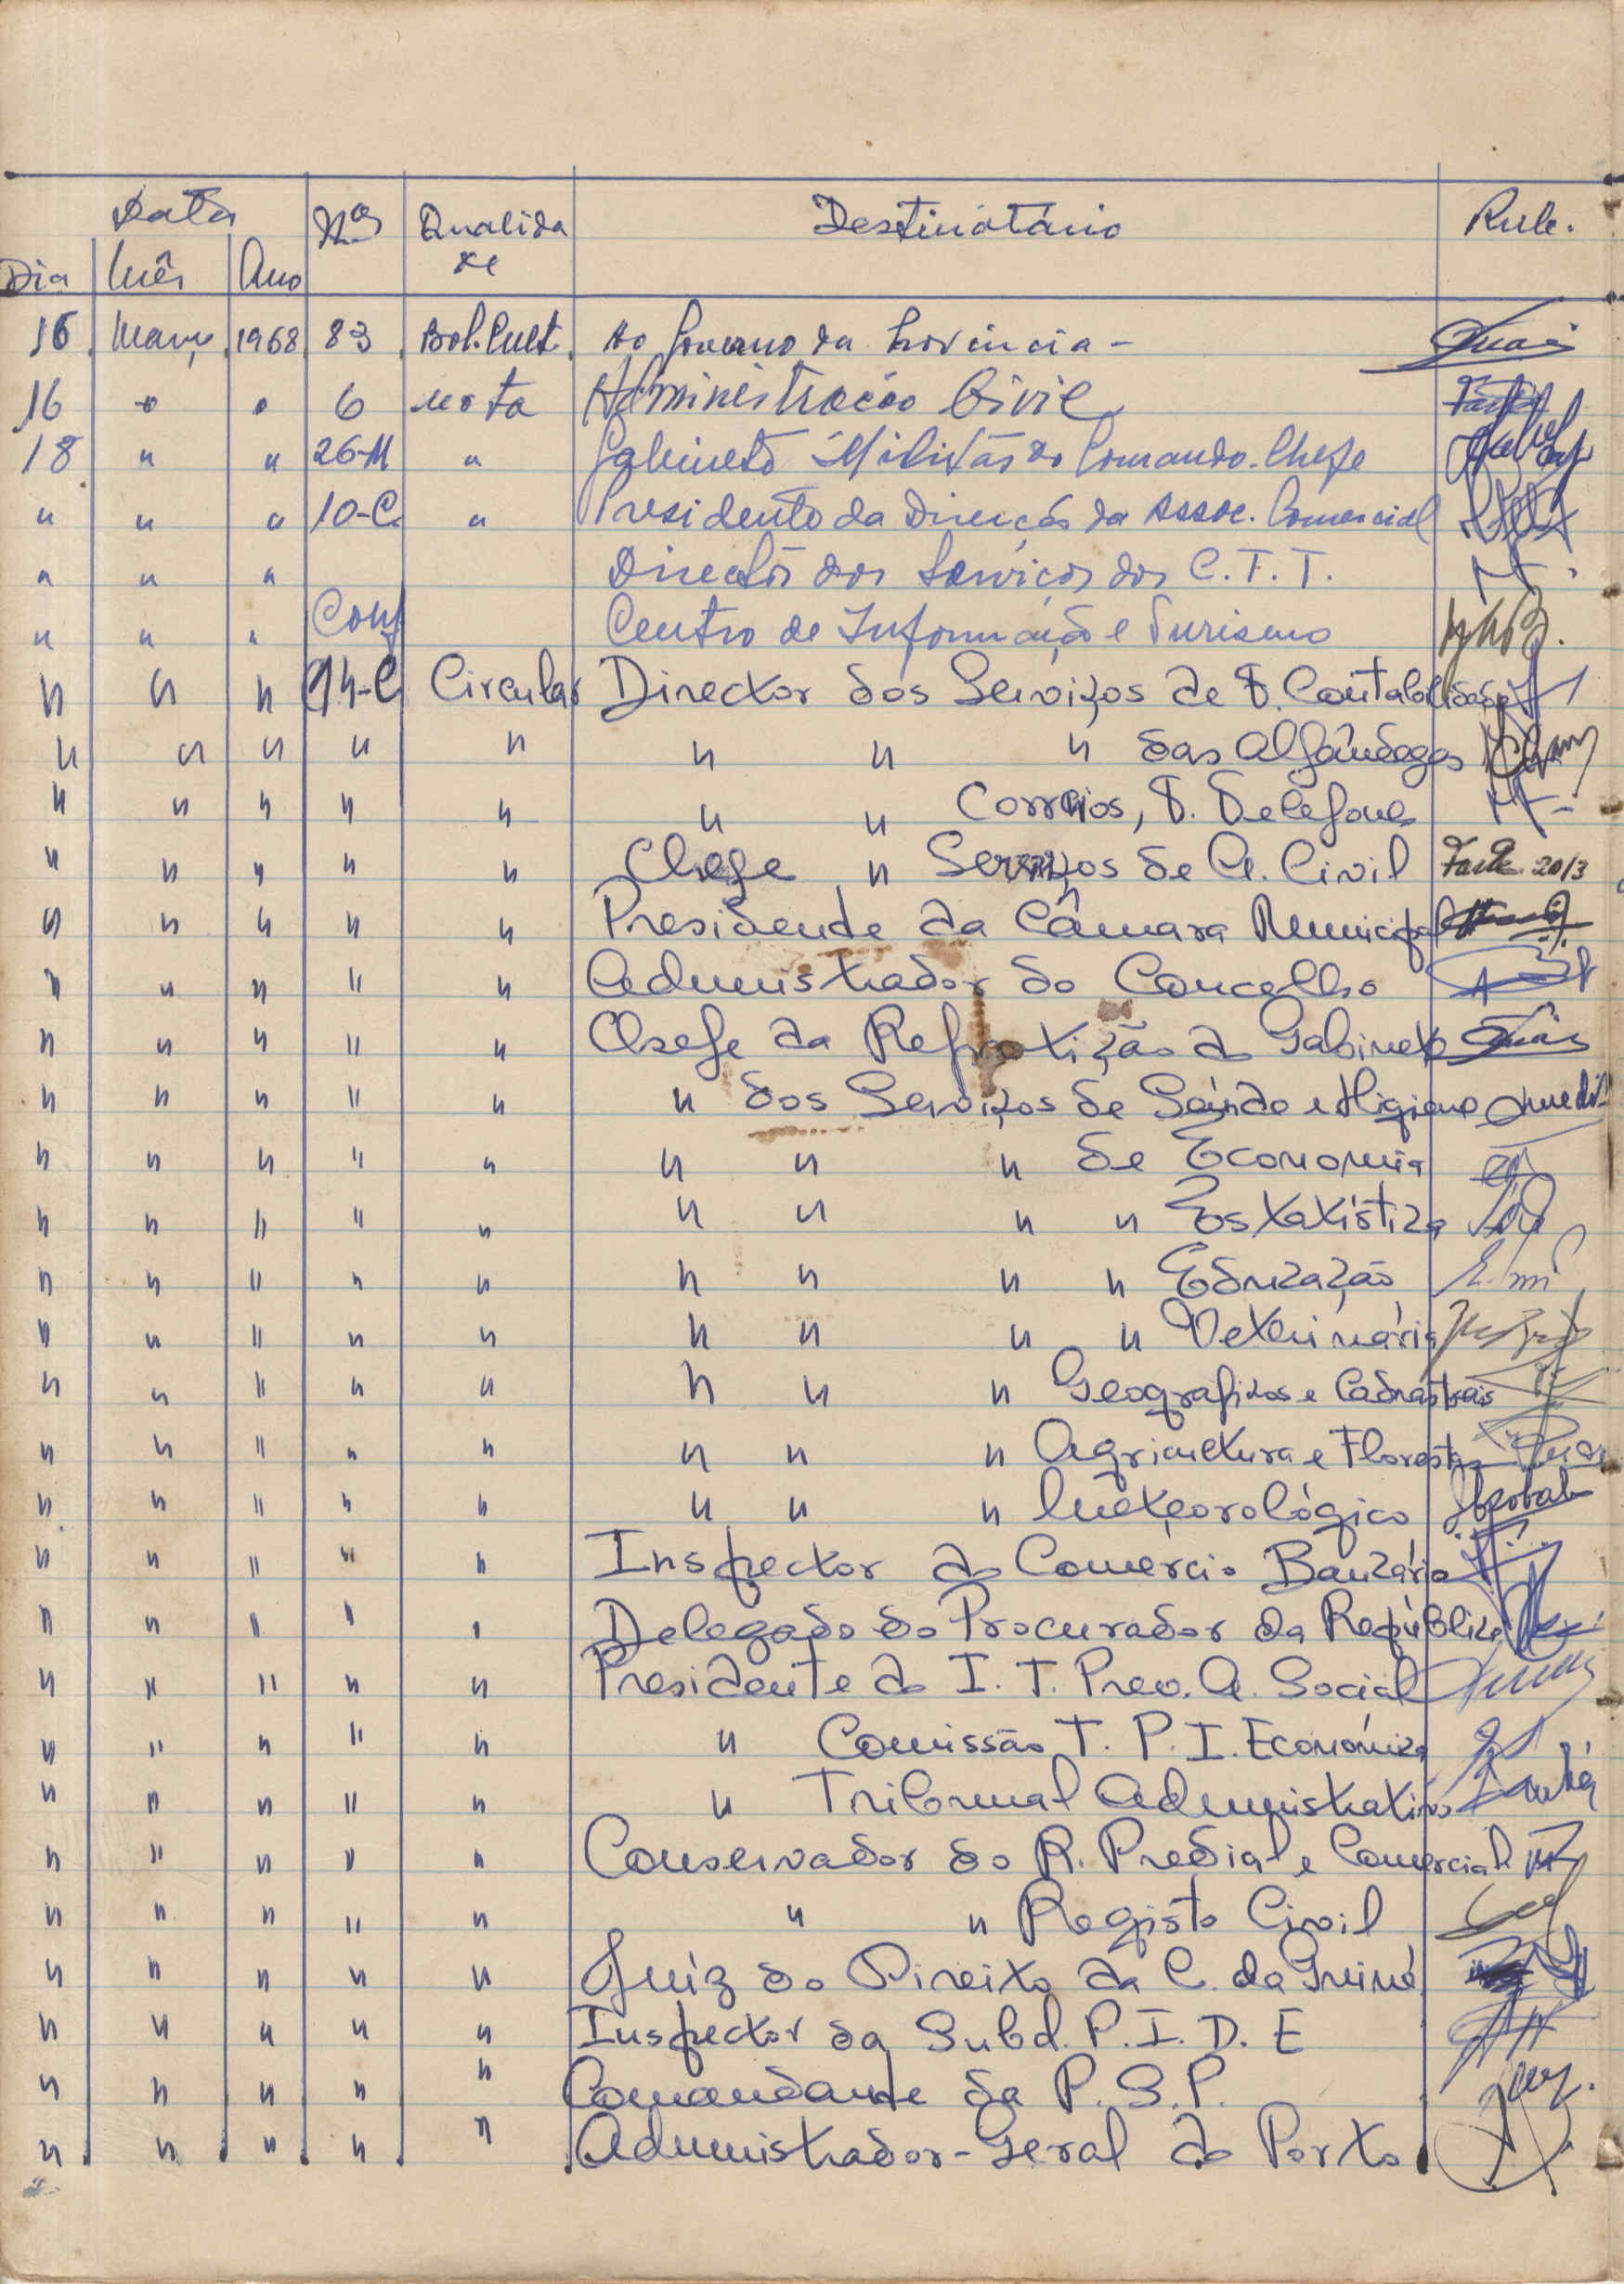 Data Nº Qualida Destinatário Rub.
de
Dia Mês Ano
16 Março 1968 83 Bol. Cult. Ao Governo da Província -
16 " " 6 nota Administração Civil
18 " " 26-M " Gabinete Militar do Comando-Chefe
" " " 10-C. " Presidente da Direcção da Assoc. Comercial
" " " Director dos Serviços dos C.T.T.
Conf
" " " Centro de Informação e Turismo
" " " 14-C Circular Director dos Serviços de F. Contabilidade
" " " " " " " " das Alfândegas
" " " " " " " Correios, T. Telefones
" " " " " Chefe " Serviços de A. Civil 20/3
" " " " " Presidente da Câmara Municipal
" " " " " Administrador do Concelho
" " " " " Chefe da Repartição do Gabinete
" " " " " " dos Serviços de Saúde e Higiene
" " " " " " " " de Economia
" " " " " " " " " Estatística
" " " " " " " " " Educação
" " " " " " " " " Veterinária
" " " " " " " " Geograficos e Cadastrais
" " " " " " " " Agricultura e Florestas
" " " " " " " " Meteorológico
" " " " " Inspector do Comércio Bancário
" " " " " Delegado do Procurador da República
" " " " " Presidente do I. T. Prev. A. Social
" " " " " " Comissão T. P. I. Económica
" " " " " " Tribunal Administrativo
" " " " " Conservador do R. Predial e Comercial
" " " " " " " Registo Civil
" " " " " Juiz do Direito da C. da Guiné
" " " " " Inspector da Subd. P. I. D. E
" " " " " Comandante da P. S. P.
" " " " " Administrador-Geral do Porto